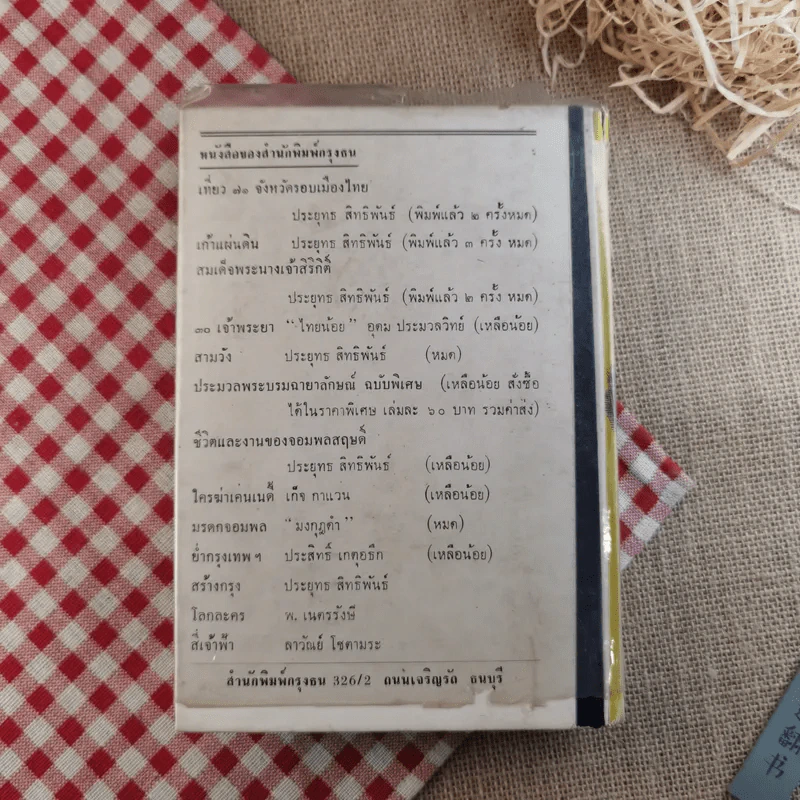 หนังสือของสำนักพิมพ์กรุงธน
เที่ยว ๗๑ จังหวัดรอบเมืองไทย
ประยุทธ สิทธิพันธ์ (พิมพ์แล้ว ๒ ครั้งหมด)
เก้าแผ่นดิน ประยุทธ สิทธิพันธ์ (พิมพ์แล้ว ๓ ครั้ง หมด)
สมเด็จพระนางเจ้าสิริกิติ์
ประยุทธ สิทธิพันธ์ (พิมพ์แล้ว ๒ ครั้ง หมด)
๓๐ เจ้าพระยา “ไทยน้อย” อุดม ประมวลวิทย์ (เหลือน้อย)
สามวัง ประยุทธ สิทธิพันธ์ (หมด)
ประมวลพระบรมฉายาลักษณ์ ฉบับพิเศษ (เหลือน้อย สั่งซื้อ
ได้ในราคาพิเศษ เล่มละ ๖๐ บาท รวมค่าส่ง)
ชีวิตและงานของจอมพลสฤษดิ์
ประยุทธ สิทธิพันธ์ (เหลือน้อย)
ใครฆ่าเคนเนดี้ เก็จ กาแวน (เหลือน้อย)
มรดกจอมพล “มงกุฎดำ” (หมด)
ย่ำกรุงเทพ ฯ ประสิทธิ์ เกตุอธึก (เหลือน้อย)
สร้างกรุง ประยุทธ สิทธิพันธ์
โลกละคร พ. เนตรรังษี
สี่เจ้าฟ้า ลาวัณย์ โชตามระ
สำนักพิมพ์กรุงธน 326/2 ถนนเจริญรัถ ธนบุรี
翻
书